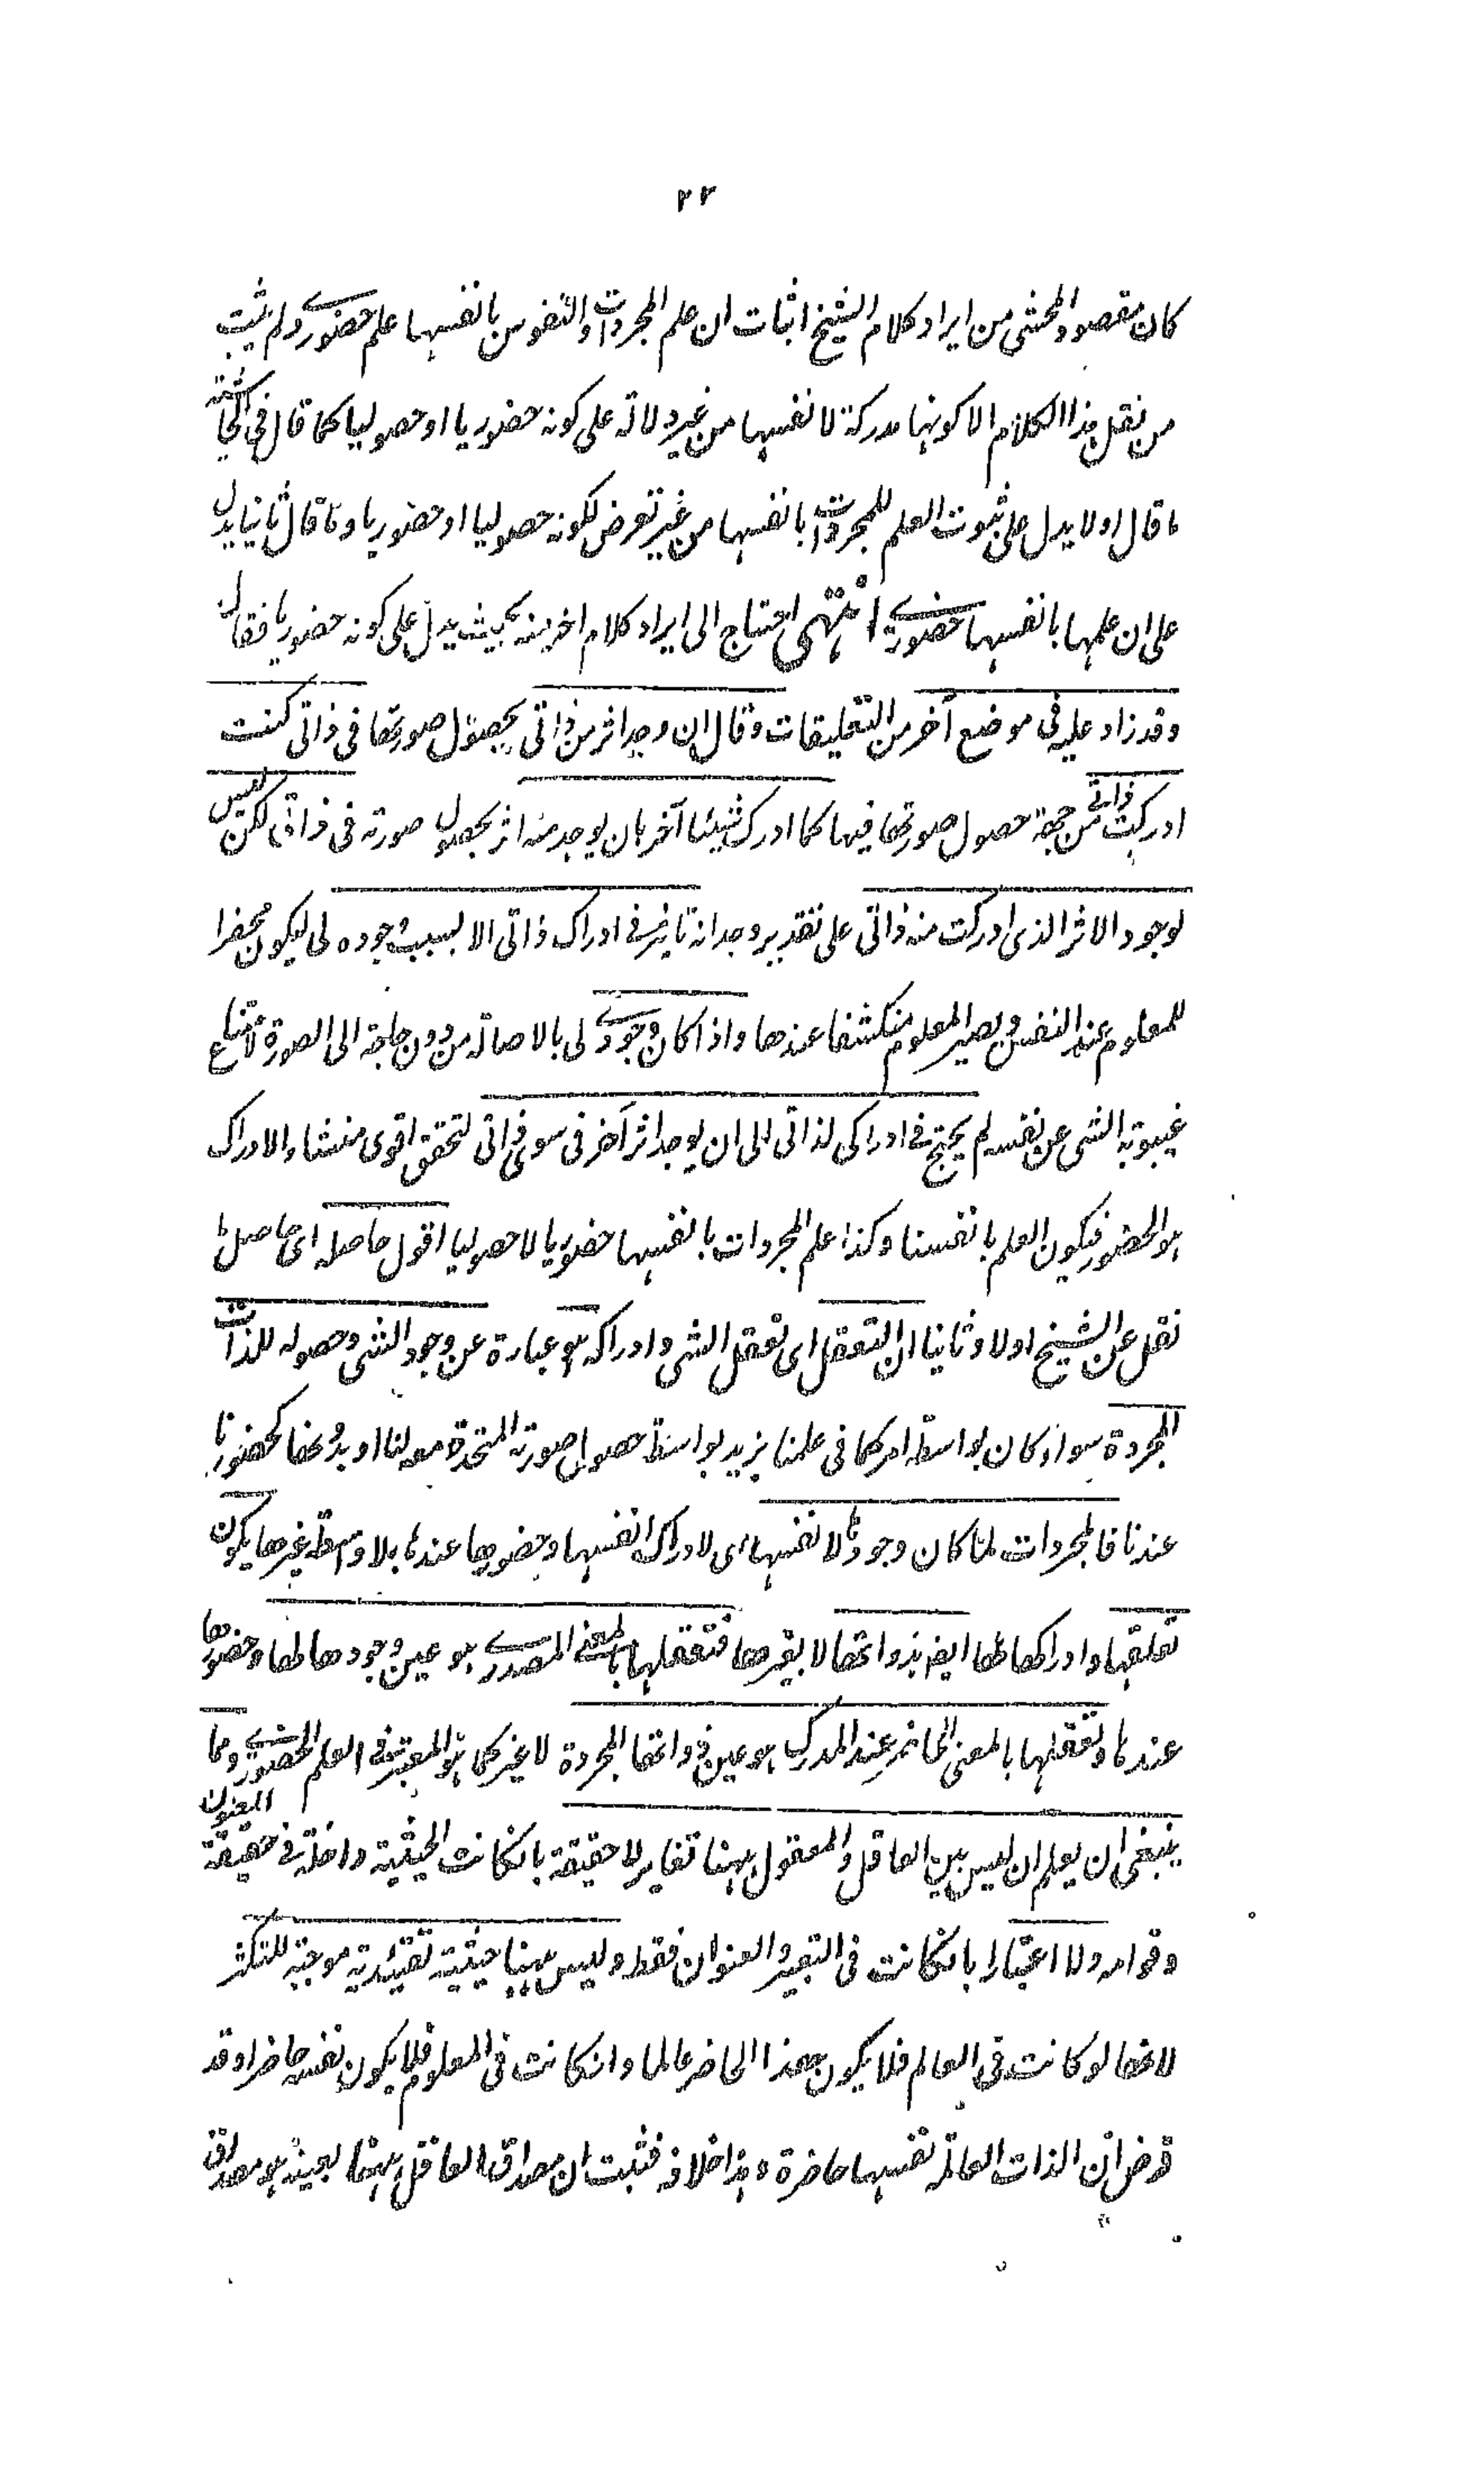 ٢٢
كان مقصود المحشي من ايراد كلام الشيخ اثبات ان علم المجردات والنفوس بانفسها علم حضوري ولم يثبت
من نقل هذا الكلام الا كونها مدركة لانفسها من غير دلالة على كونه حضوريا او حصوليا كما قال في الحاشية
ما قال اولا يدل على ثبوت العلم للمجردات بانفسها من غير تعرض لكونه حصوليا او حضوريا وما قال ثانيا يدل
على ان علمها بانفسها حضوري انتهى احتاج الى ايراد كلام اخر منه بحيث يدل على كونه حضوريا فقال
وقد زاد عليه في موضع آخر من التعليقات وقال ان وجد اثر من ذاتي بحصول صورتها في ذاتي كنت
ادركت ذاتي من جهة حصول صورتها فيها كما ادرك شيئا آخر بان يوجد منه اثر بحصول صورته في ذاتي لكن ليس
لوجود الاثر الذي ادركت منه ذاتي على تقدير وجدانه تاثير في ادراك ذاتي الا لسبب وجوده لي ليكون محضرا
للمعلوم عند النفس ويصير المعلوم منكشفا عندها واذا كان وجودي لي بالاصالة من دون حاجة الى الصورة لامتناع
غيبوبة الشي عن نفسه لم يحتج في ادراكي لذاتي الى ان يوجد اثر آخر في سوى ذاتي لتحقق اقوى منشاء الادراك
هو الحضور فيكون العلم بانفسنا وكذا علم المجردات بانفسها حضوريا لا حصوليا اقول حاصله اي حاصل ما
نقل عن الشيخ اولا وثانيا ان التعقل اي تعقل الشي وادراكه هو عبارة عن وجود الشي وحصوله للذات
المجردة سواء كان بواسطة امر كما في علمنا بزيد بواسطة حصول صورته المتحدة معه لنا او بدونها كحضورنا
عندنا فالمجردات لما كان وجودها لانفسها اي لادراك انفسها وحضورها عندها بلا واسطة غيرها يكون
تعلقها وادراكها لها ايضا بذواتها لا بغيرها فتعقلها بالمعنى المصدري هو عين وجودها لها وحضورها
عندها وتعقلها بالمعنى الحاضر عند المدرك هو عين ذواتها المجردة لا غير كما هو المعتبر في العلم الحضوري ومما
ينبغي ان يعلم ان ليس بين العاقل والمعقول ههنا تغاير لا حقيقة بان كانت الحيثية داخلة في حقيقة المعنون
وقوامه ولا اعتبارا بان كانت في التعبير والعنوان فقط وليس ههنا حيثية تقييدية موجبة للتكثر
لانها لو كانت في العالم فلا يكون بهذا الحاضر عالما وان كانت في المعلوم فلا يكون نفسه حاضرا وقد
فرض ان الذات العالمة نفسها حاضرة وهذا خلاف فثبت ان مصداق العاقل ههنا بعينه هو مصداق